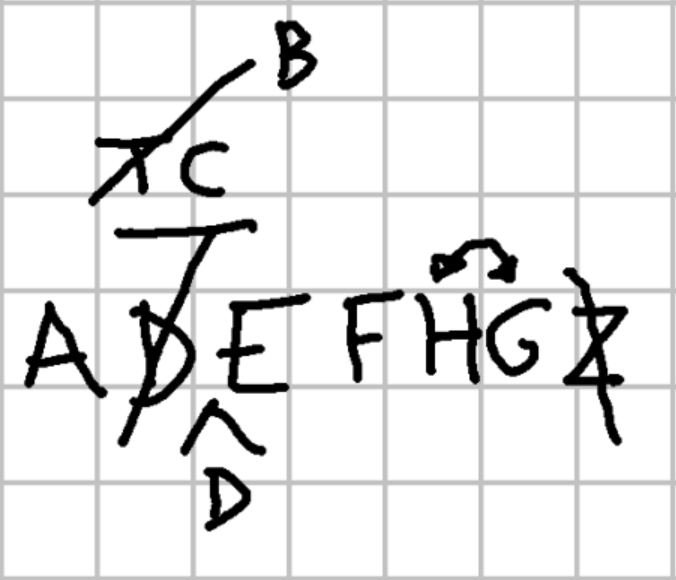 B
T C
A D E F H G Z
D